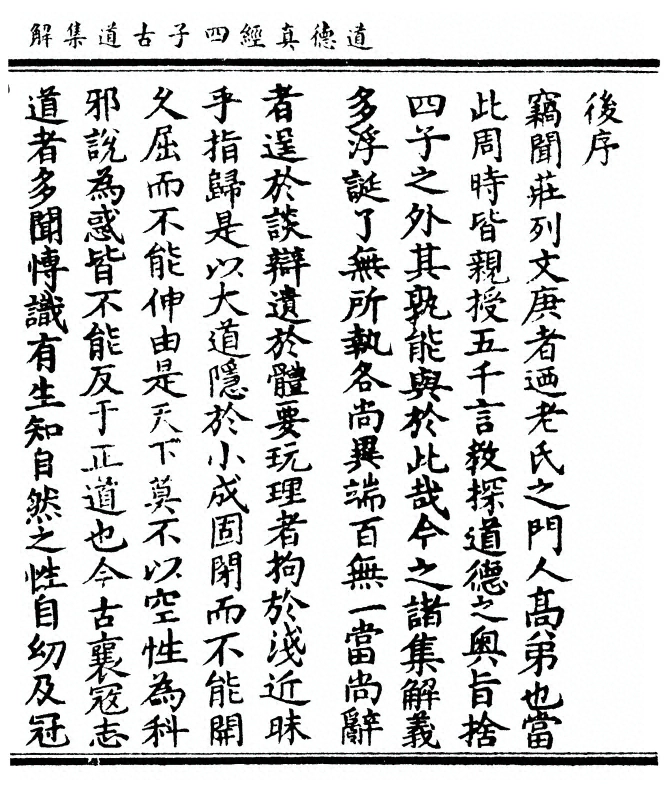 道德真經四子古道集解
後序
竊聞莊列文庚者迺老氏之門人高弟也當
此周時皆親授五千言教探道德之奧旨捨
四子之外其孰能與於此哉今之諸集解義
多浮誕了無所執各尚異端百無一當尚辭
者逞於談辯遺於體要玩理者拘於淺近昧
乎指歸是以大道隱於小成固閉而不能開
久屈而不能伸由是天下莫不以空性為科
邪說為惑皆不能反于正道也今古襄寇志
道者多聞慱識有生知自然之性自幼及冠